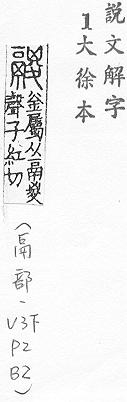 說文解字
1大徐本
鬷
釜屬从鬲㚇
聲子紅切
(鬲部、V3下P2B2)